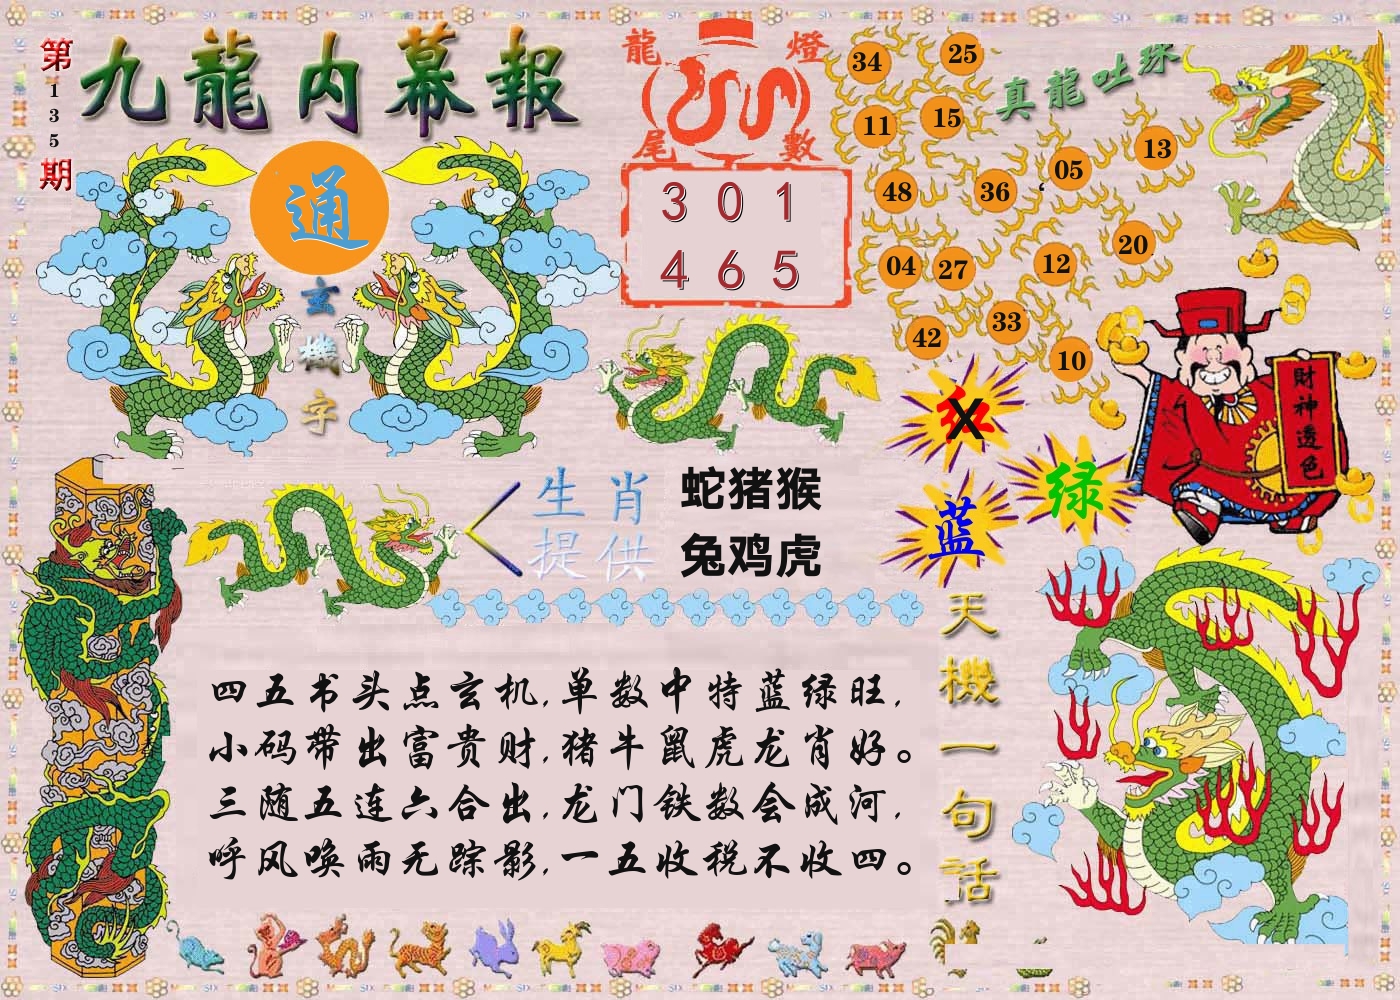 第
135
期
九龍内幕報
通
玄機字
龍燈
尾數
301
465
真龍吐珠
34
25
11
15
13
05
48
36
20
04
27
12
33
42
10
財神透色
红
X
绿
蓝
生肖
提供
蛇猪猴
兔鸡虎
天機一句話
四五书头点玄机,单数中特蓝绿旺,
小码带出富贵财,猪牛鼠虎龙肖好。
三随五连六合出,龙门铁数会成河,
呼风唤雨无踪影,一五收税不收四。